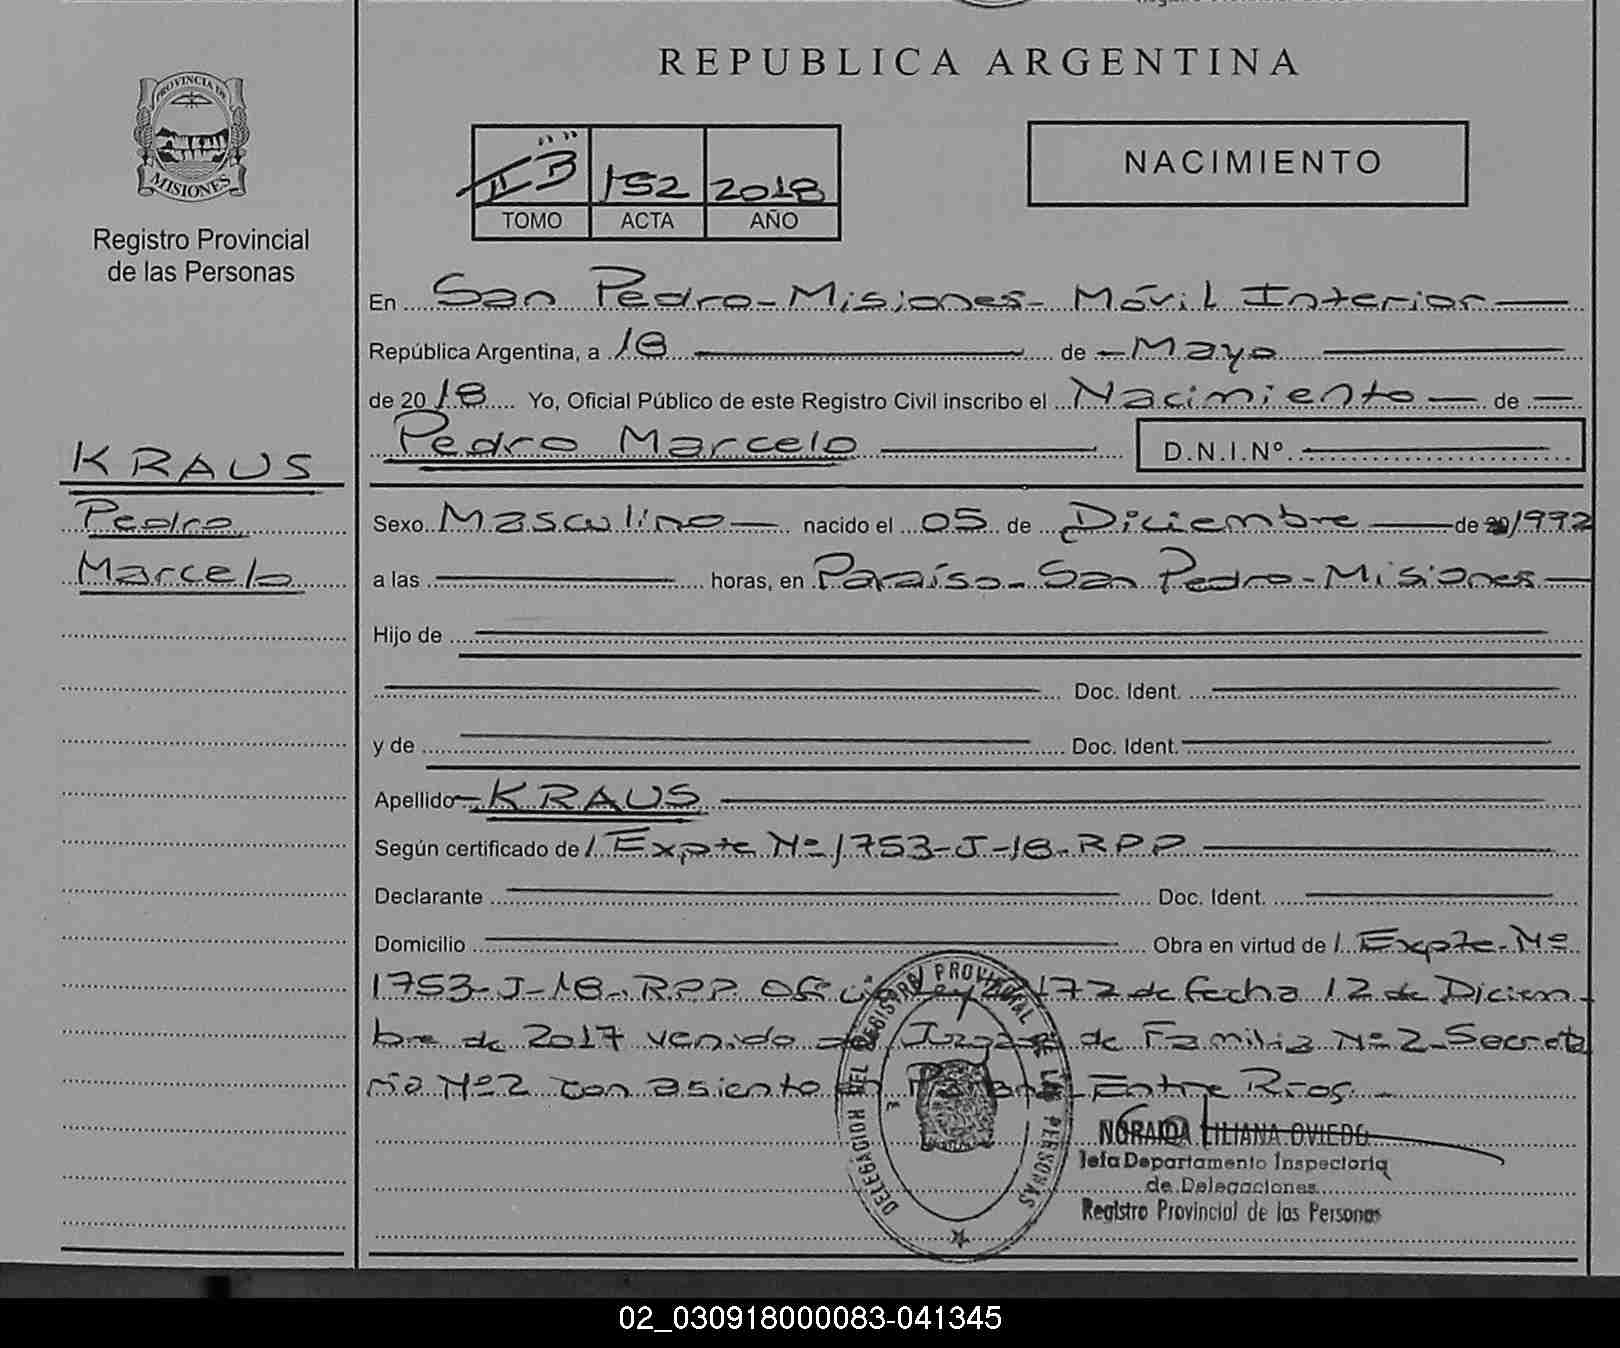 REPUBLICA ARGENTINA
PROVINCIA DE
MISIONES
Registro Provincial
de las Personas
II "B" 152 2018
TOMO ACTA AÑO
NACIMIENTO
En San Pedro - Misiones - Móvil Interior
República Argentina, a 18 de Mayo
de 2018 Yo, Oficial Público de este Registro Civil inscribo el Nacimiento de
Pedro Marcelo D.N.I.Nº
KRAUS
Pedro
Marcelo
Sexo Masculino nacido el 05 de Diciembre de 1992
a las horas, en Paraíso - San Pedro - Misiones
Hijo de
Doc. Ident.
y de Doc. Ident.
Apellido KRAUS
Según certificado de / Expte Nº 1753-J-18-RPP
Declarante Doc. Ident.
Domicilio Obra en virtud de / Expte. Nº
1753-J-18-RPP de fecha 12 de Diciem-
bre de 2017 venido de Familia Nº 2 - Secreta
ria Nº 2 con asiento Entre Ríos. -
DELEGACION DEL REGISTRO PROVINCIAL DE LAS PERSONAS
NORAIDA LILIANA OVIEDO
Jefa Departamento Inspectoria
de Delegaciones
Registro Provincial de las Personas
02_030918000083-041345